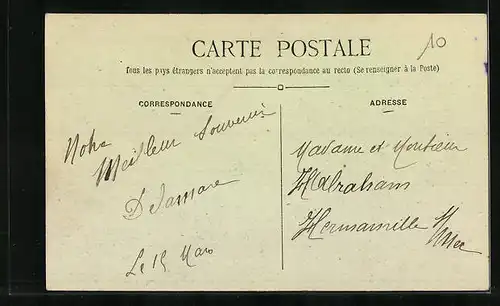 10
CARTE POSTALE
Tous les pays étrangers n'acceptent pas la correspondance au recto (Se renseigner à la Poste)
CORRESPONDANCE
Notre
Meilleur Souvenir
Delamare
Le 15 Mars
ADRESSE
Madame et Monsieur
Habraham
Hermanville s/
Mer